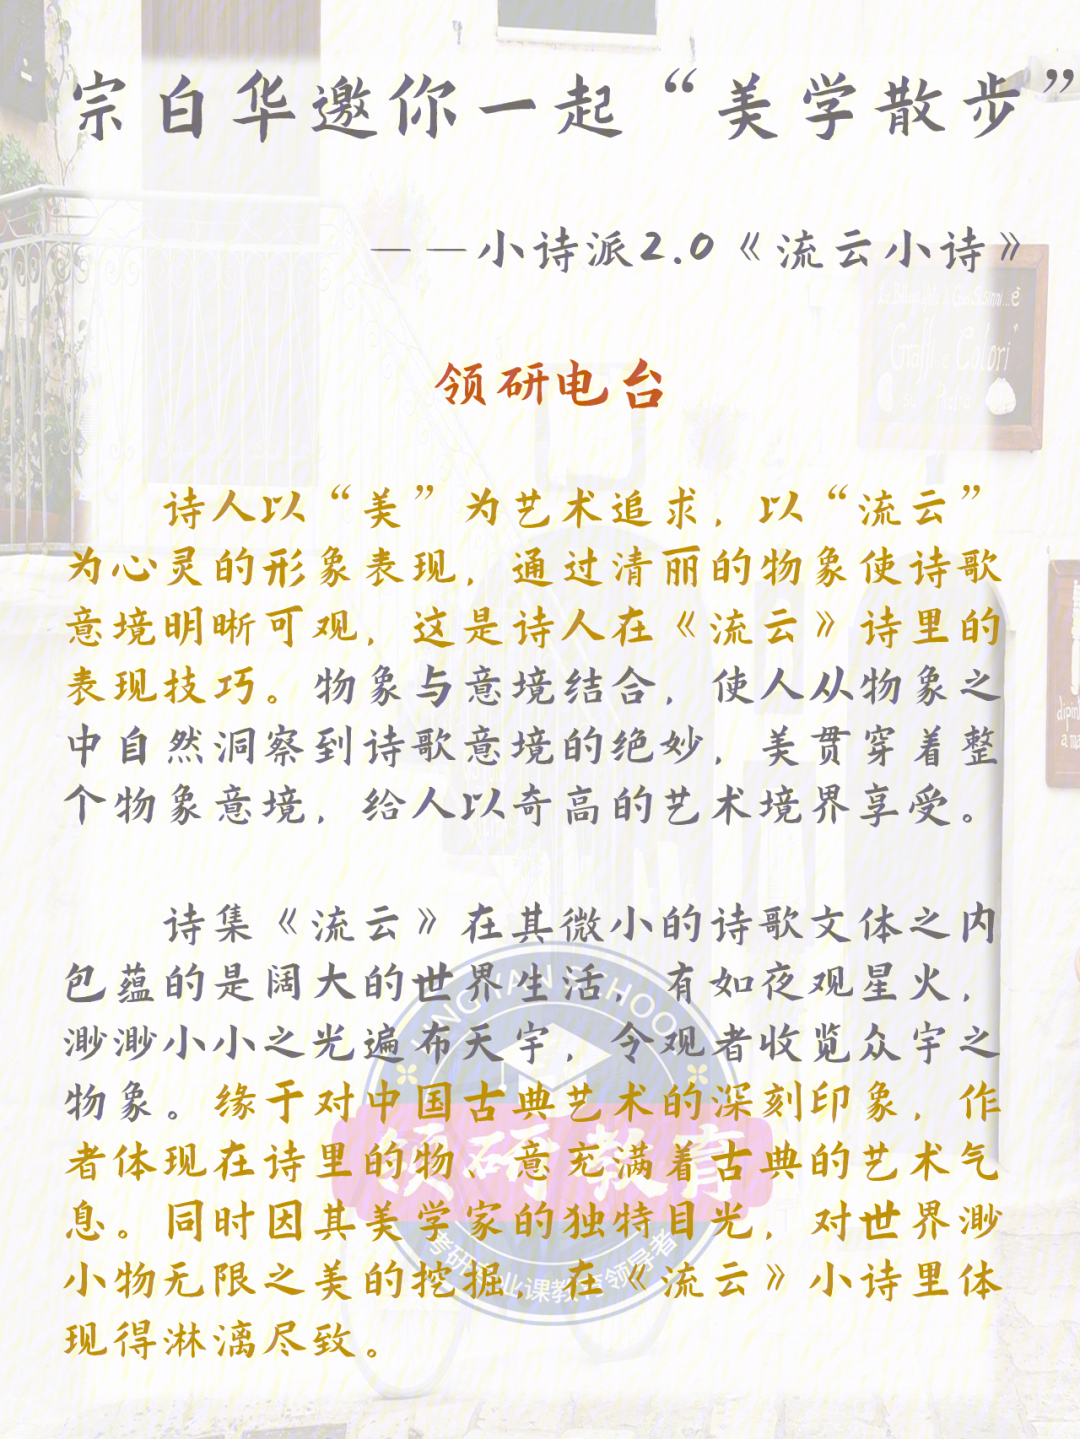 宗白华邀你一起“美学散步”
——小诗派2.0《流云小诗》
领研电台
诗人以“美”为艺术追求，以“流云”
为心灵的形象表现，通过清丽的物象使诗歌
意境明晰可观，这是诗人在《流云》诗里的
表现技巧。物象与意境结合，使人从物象之
中自然洞察到诗歌意境的绝妙，美贯穿着整
个物象意境，给人以奇高的艺术境界享受。
诗集《流云》在其微小的诗歌文体之内
包蕴的是阔大的世界生活，有如夜观星火，
渺渺小小之光遍布天宇，令观者收览众宇之
物象。缘于对中国古典艺术的深刻印象，作
者体现在诗里的物、意充满着古典的艺术气
息。同时因其美学家的独特目光，对世界渺
小物无限之美的挖掘，在《流云》小诗里体
现得淋漓尽致。
LINGYAN SCHOOL
领研教育
考研专业课教育领导者